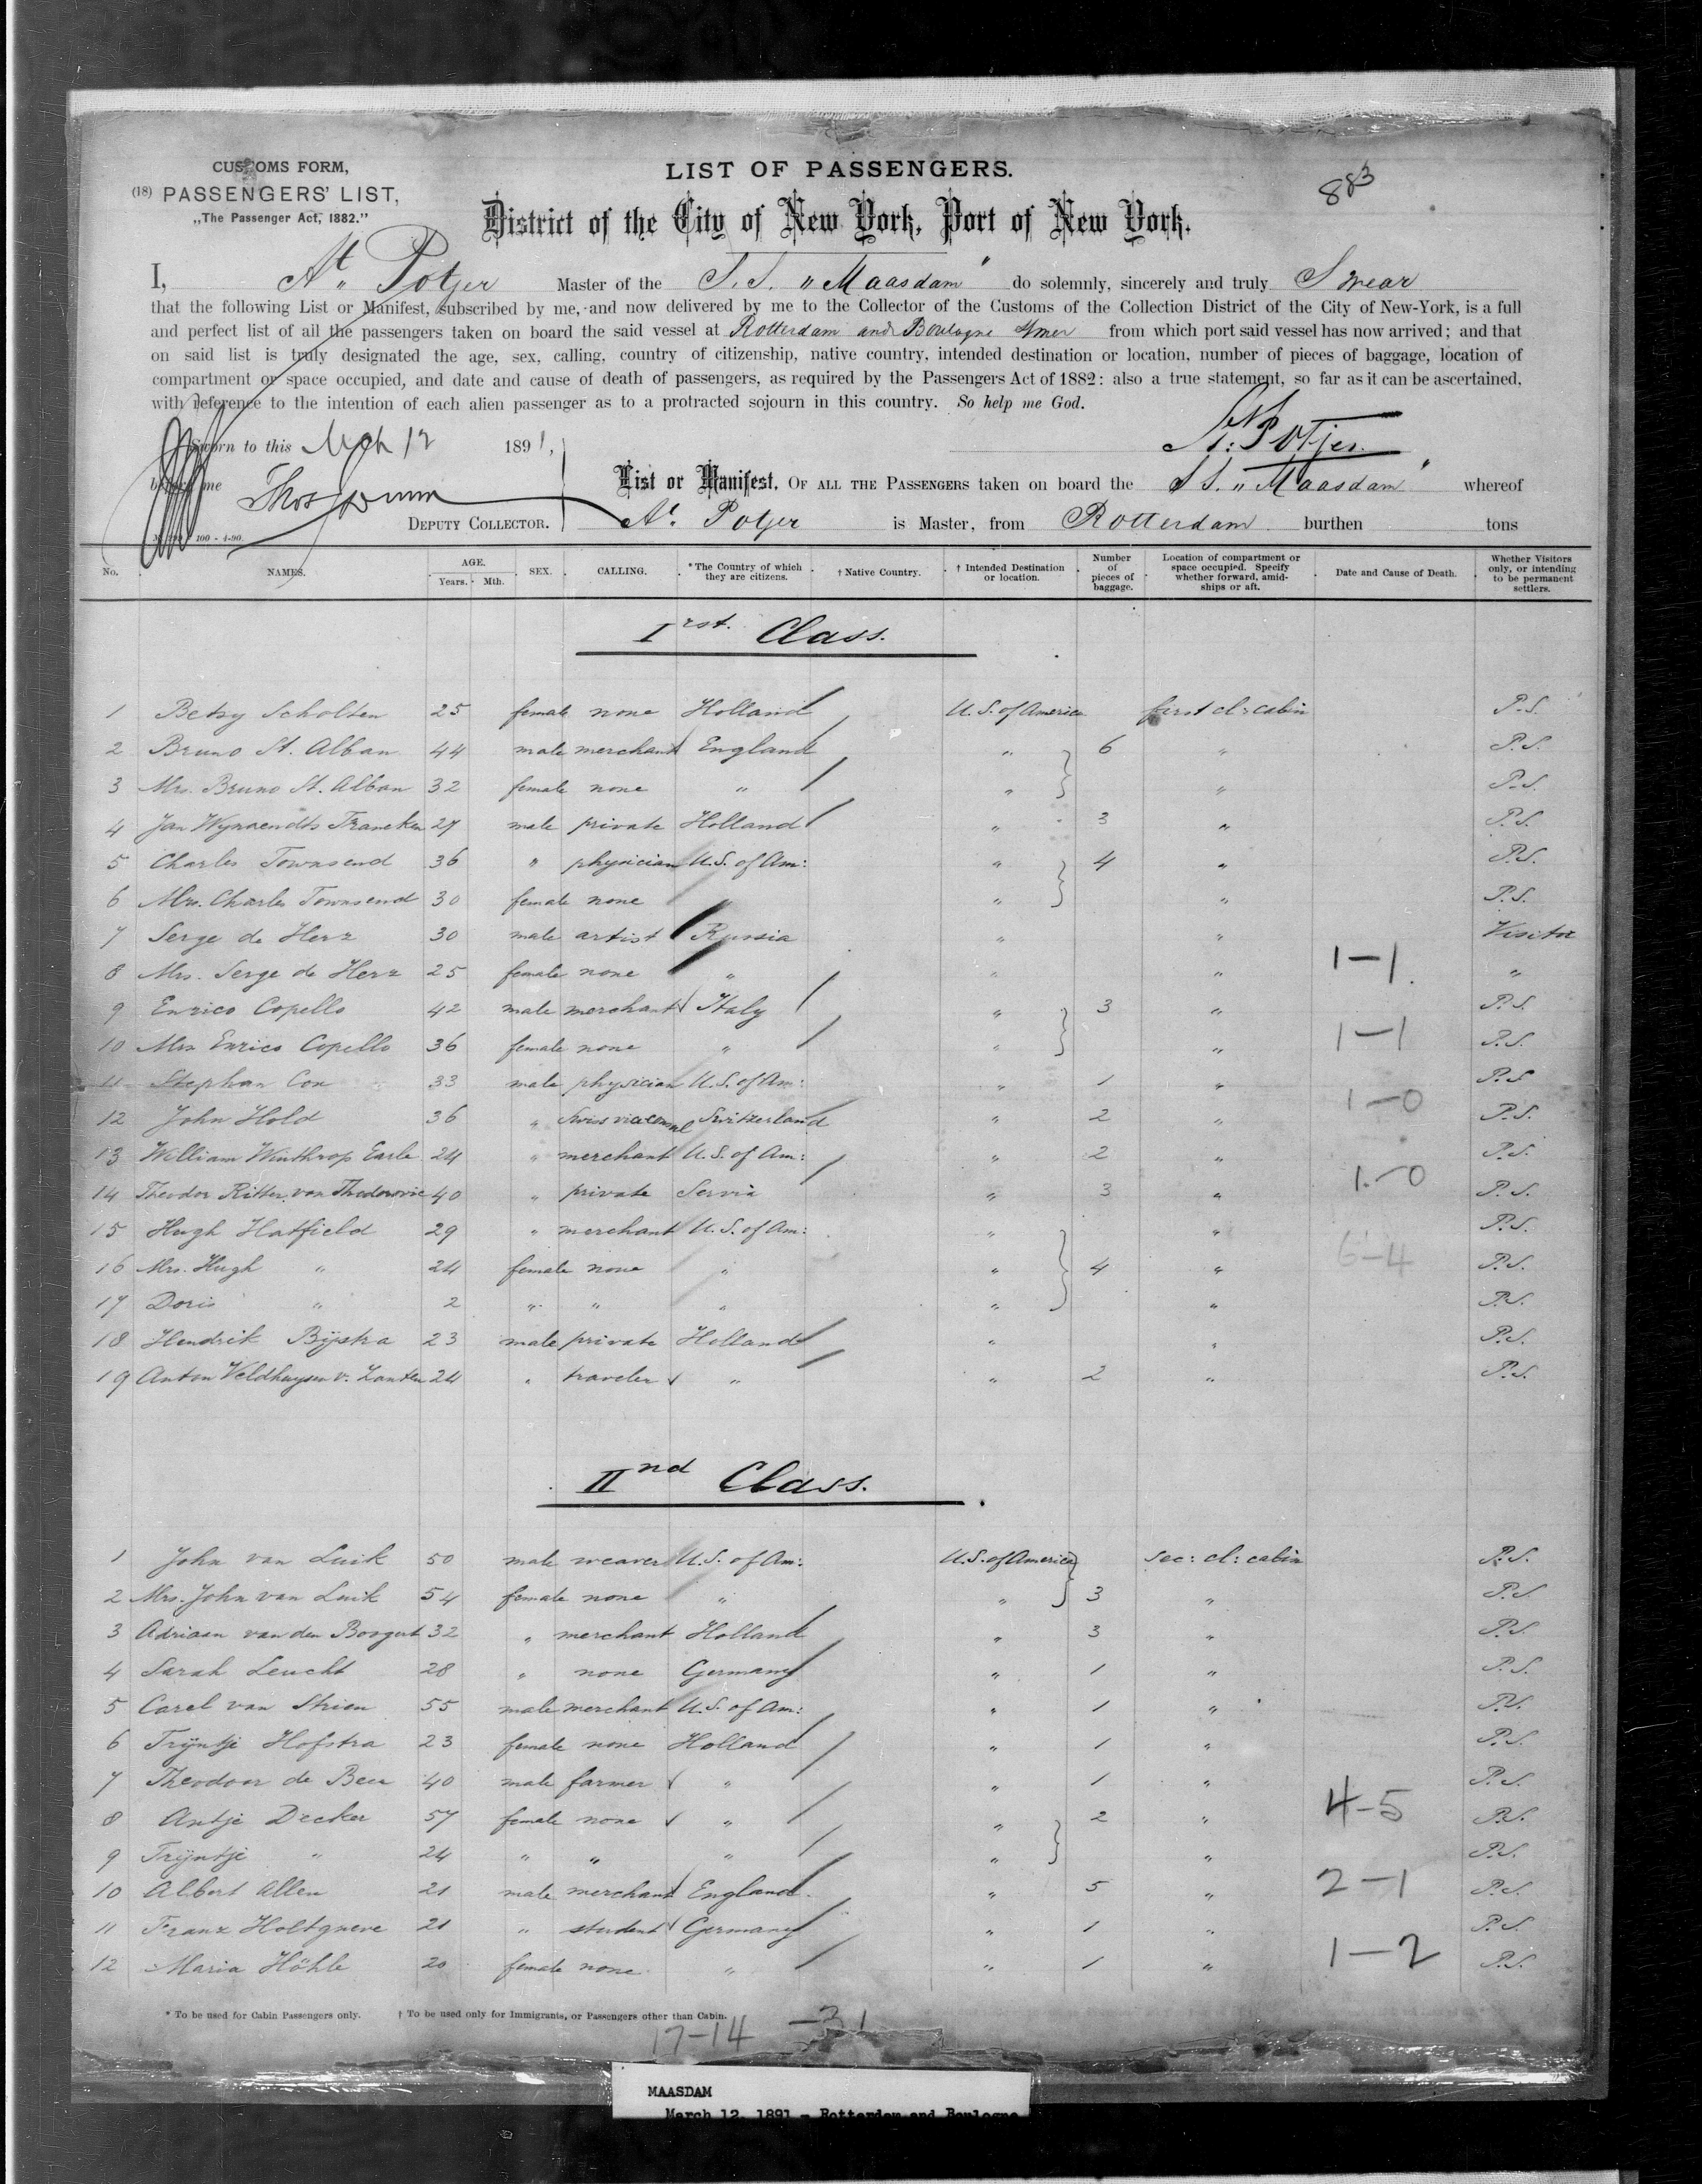 CUSTOMS FORM,
(18) PASSENGERS' LIST,
„The Passenger Act, 1882."
LIST OF PASSENGERS.
883
District of the City of New York, Port of New York.
I, At. Potjer Master of the S.S. „Maasdam" do solemnly, sincerely and truly Swear
that the following List or Manifest, subscribed by me, and now delivered by me to the Collector of the Customs of the Collection District of the City of New-York, is a full
and perfect list of all the passengers taken on board the said vessel at Rotterdam and Boulogne s/mer from which port said vessel has now arrived; and that
on said list is truly designated the age, sex, calling, country of citizenship, native country, intended destination or location, number of pieces of baggage, location of
compartment or space occupied, and date and cause of death of passengers, as required by the Passengers Act of 1882: also a true statement, so far as it can be ascertained,
with reference to the intention of each alien passenger as to a protracted sojourn in this country. So help me God.
Sworn to this Mch 12 1891,
At: Potjer.
before me
DEPUTY COLLECTOR.
100 - 4-90.
List or Manifest, OF ALL THE PASSENGERS taken on board the SS. „Maasdam" whereof
At. Potjer is Master, from Rotterdam burthen tons
No. NAMES. AGE. Years. Mth. SEX. CALLING. *The Country of which they are citizens. † Native Country. † Intended Destination or location. Number of pieces of baggage. Location of compartment or space occupied. Specify whether forward, amidships or aft. Date and Cause of Death. Whether Visitors only, or intending to be permanent settlers.
Irst. Class.
1 Betsy Scholten 25 female none Holland U.S. of America first cl: cabin P.S.
2 Bruno St. Alban 44 male merchant England „ 6 „ P.S.
3 Mrs. Bruno St. Alban 32 female none „ „ „ P.S.
4 Jan Wynaendts Francken 27 male private Holland „ 3 „ P.S.
5 Charles Townsend 36 „ physician U.S. of Am: „ 4 „ P.S.
6 Mrs. Charles Townsend 30 female none „ „ „ P.S.
7 Serge de Herz 30 male artist Russia „ „ Visitor
8 Mrs. Serge de Herz 25 female none „ „ „ 1-1. „
9 Enrico Copello 42 male merchant Italy „ 3 „ P.S.
10 Mrs Enrico Copello 36 female none „ „ „ 1-1 P.S.
11 Stephan Cox 33 male physician U.S. of Am: „ 1 „ P.S.
12 John Hold 36 „ Swiss viceconsul Switzerland „ 2 „ 1-0 P.S.
13 William Winthrop Earle 24 „ merchant U.S. of Am: „ 2 „ P.S.
14 Theodor Ritter von Thedorovic 40 „ private Servia „ 3 „ 1-0 P.S.
15 Hugh Hatfield 29 „ merchant U.S. of Am: „ „ P.S.
16 Mrs. Hugh „ 24 female none „ „ 4 „ 6-4 P.S.
17 Doris „ 2 „ „ „ „ „ P.S.
18 Hendrik Bijstra 23 male private Holland „ „ P.S.
19 Anton Veldhuysen v. Zanten 24 „ traveler „ „ 2 „ P.S.
IInd Class.
1 John van Luik 50 male weaver U.S. of Am: U.S. of America sec: cl: cabin P.S.
2 Mrs. John van Luik 54 female none „ „ 3 „ P.S.
3 Adriaan van den Boogert 32 „ merchant Holland „ 3 „ P.S.
4 Sarah Leucht 28 „ none Germany „ 1 „ P.S.
5 Carel van Strien 55 male merchant U.S. of Am: „ 1 „ P.S.
6 Trijntje Hofstra 23 female none Holland „ 1 „ P.S.
7 Theodoor de Beer 40 male farmer „ „ 1 „ P.S.
8 Antje Decker 57 female none „ „ 2 „ 4-5 P.S.
9 Trijntje „ 24 „ „ „ „ „ P.S.
10 Albert Allen 21 male merchant England „ 5 „ 2-1 P.S.
11 Franz Holtgreve 21 „ student Germany „ 1 „ P.S.
12 Maria Höhle 20 female none „ „ 1 „ 1-2 P.S.
* To be used for Cabin Passengers only. † To be used only for Immigrants, or Passengers other than Cabin.
17-14 -31
MAASDAM
March 12, 1891 - Rotterdam and Boulogne